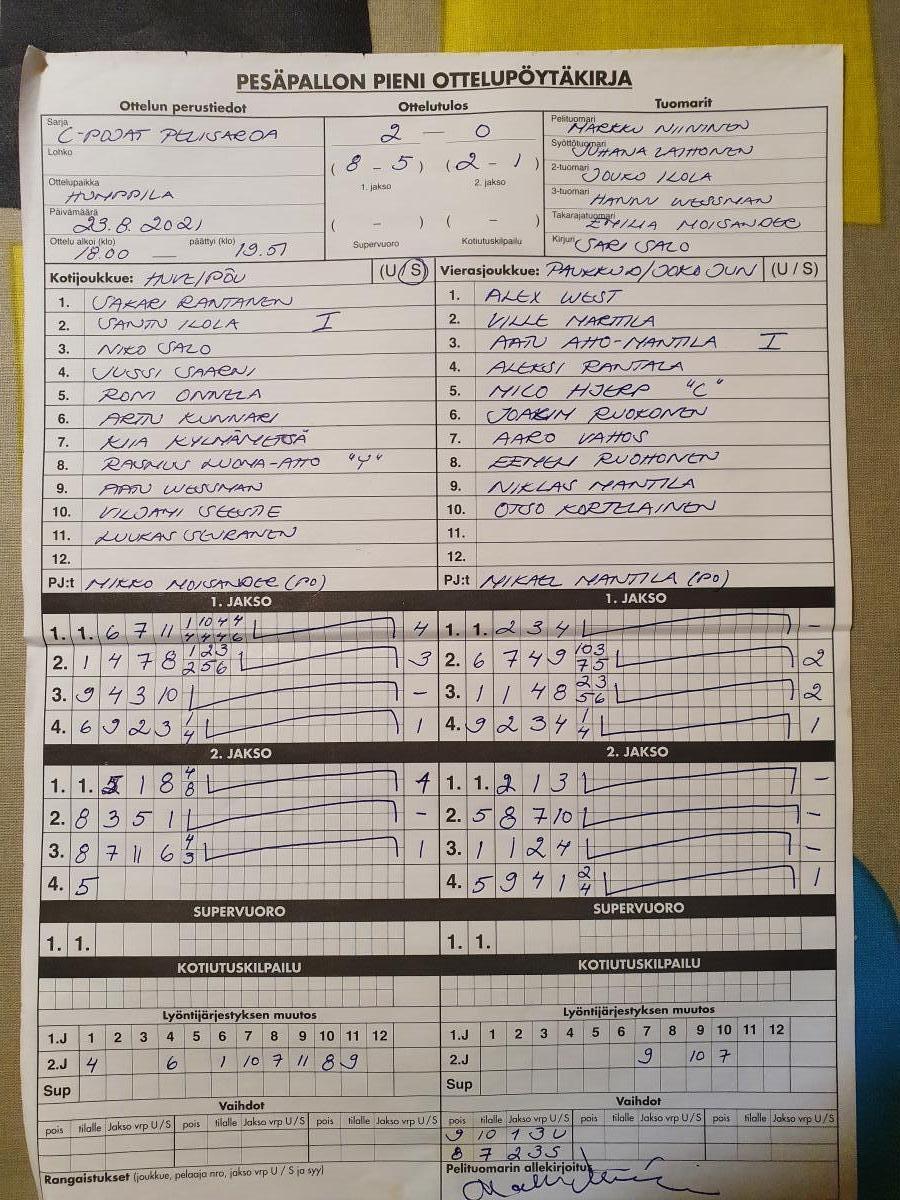 PESÄPALLON PIENI OTTELUPÖYTÄKIRJA
Ottelun perustiedot Ottelutulos Tuomarit
Sarja C-POJAT PELISARJA 2 — 0 Pelituomari MARKKU NIININEN
Lohko (8 - 5) (2 - 1) Syöttötuomari JUHANA LAIHONEN
1. jakso 2. jakso 2-tuomari JOUKO ILOLA
Ottelupaikka HUMPPILA 3-tuomari HANNU WESSMAN
Päivämäärä 23.8.2021 ( - ) ( - ) Takarajatuomari EMILIA MOISANDER
Ottelu alkoi (klo) 18.00 päättyi (klo) 19.51 Supervuoro Kotiutuskilpailu Kirjuri SARI SALO
Kotijoukkue: HUVE/PÖU (U/S) Vierasjoukkue: (U/S)
1. SAKARI RANTANEN 1. ALEX WEST
2. SANTU ILOLA I 2. VILLE MARTTILA
3. NIKO SALO 3. AATU AHO-MANTILA I
4. JUSSI SAARNI 4. ALEKSI RANTALA
5. RONI ONNELA 5. MICO HJERP "C"
6. ARTTU KUNNARI 6. JOAKIM RUOKONEN
7. KIIA KYLMÄMETSÄ 7. AARO VAHOS
8. RASMUS LUOMA-AHO "Y" 8. EEMELI RUOHONEN
9. AATU WESSMAN 9. NIKLAS MANTILA
10. VILJAMI SEESTE 10. OTSO KORTELAINEN
11. LUUKAS SEURANEN 11.
12. 12.
PJ:t MIKKO MOISANDER (PO) PJ:t MIKAEL MANTILA (PO)
1. JAKSO 1. JAKSO
1. 1. 6 7 11 1/4 10/4 4/4 4/6 4 1. 1. 2 3 4 -
2. 1 4 7 8 1/2 2/5 3/6 3 2. 6 7 4 9 10/7 3/5 2
3. 9 4 3 10 - 3. 1 1 4 8 2/5 3/6 2
4. 6 9 2 3 1/4 1 4. 9 2 3 4 1/4 1
2. JAKSO 2. JAKSO
1. 1. 1 8 4/8 1 1. 1. 2 1 3 -
2. 8 3 5 1 - 2. 5 8 7 10 -
3. 8 7 11 6 4/3 1 3. 1 1 2 4 -
4. 5 4. 5 9 4 1 2/4 1
SUPERVUORO SUPERVUORO
1. 1. 1. 1.
KOTIUTUSKILPAILU KOTIUTUSKILPAILU
Lyöntijärjestyksen muutos Lyöntijärjestyksen muutos
1.J 1 2 3 4 5 6 7 8 9 10 11 12 1.J 1 2 3 4 5 6 7 8 9 10 11 12
2.J 4 6 1 10 7 11 8 9 2.J 9 10 7
Sup Sup
Vaihdot Vaihdot
pois tilalle Jakso vrp U/S pois tilalle Jakso vrp U/S pois tilalle Jakso vrp U/S pois tilalle Jakso vrp U/S pois tilalle Jakso vrp U/S pois tilalle Jakso vrp U/S
9 10 1 3 U
8 7 2 3 S
Rangaistukset (joukkue, pelaaja nro, jakso vrp U / S ja syy) Pelituomarin allekirjoitus